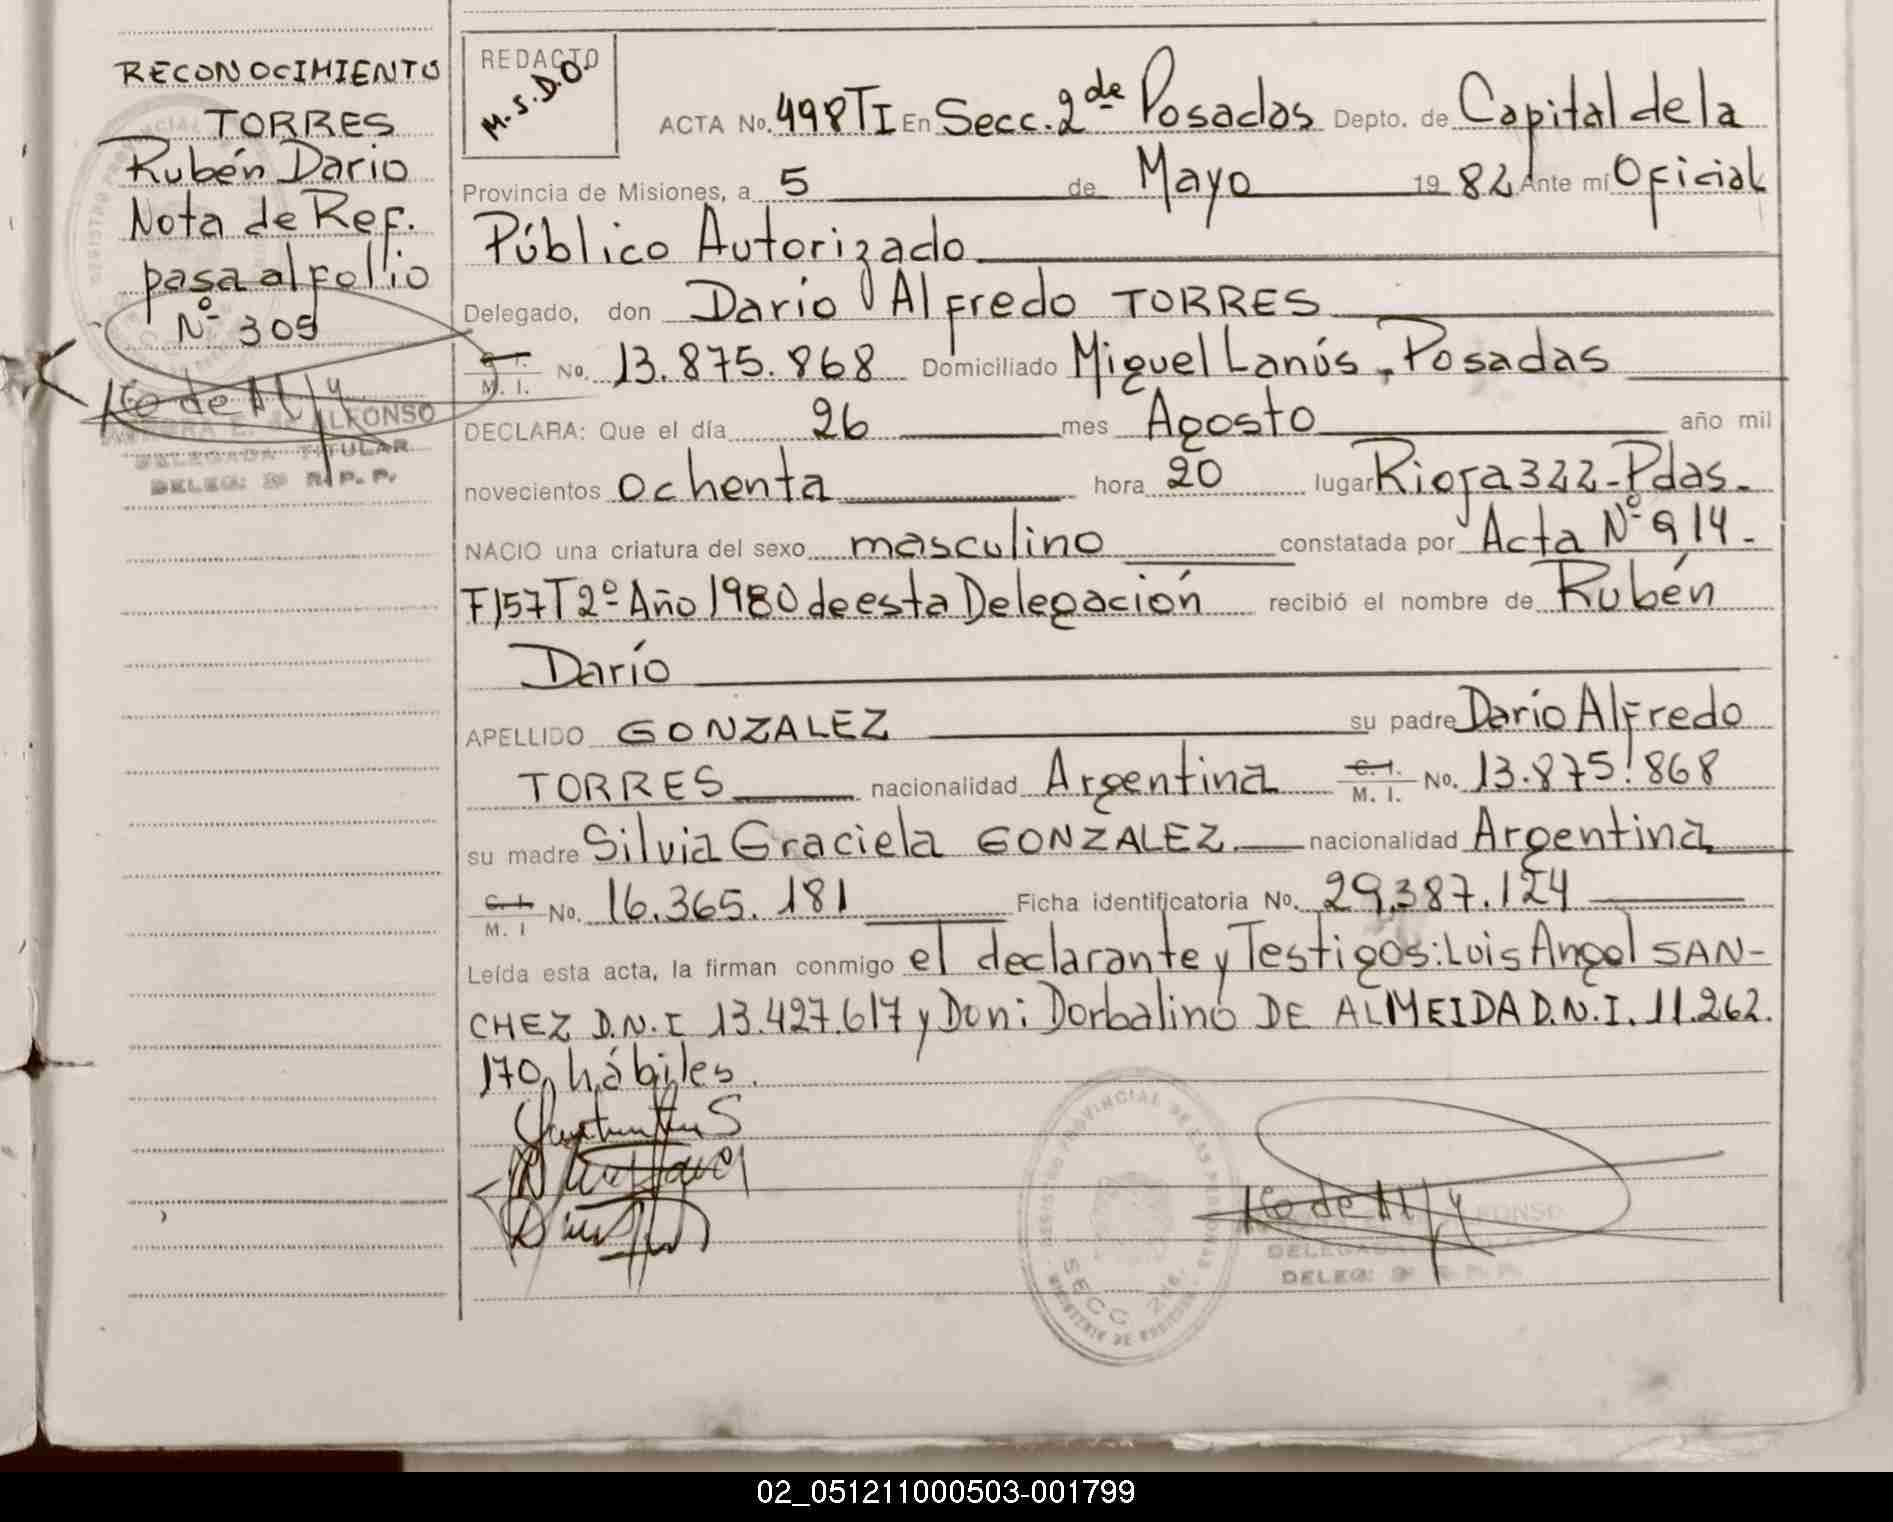 RECONOCIMIENTO
TORRES
Rubén Dario
Nota de Ref.
pasa al folio
Nº 305
E. de ALFONSO
DELEGADA TITULAR
DELEG: 2ª R. P. P.
REDACTO
M.S.D.O.
ACTA No. 498 TI En Secc. 2da Posadas Depto. de Capital de la
Provincia de Misiones, a 5 de Mayo 19 82 Ante mí Oficial
Público Autorizado
Delegado, don Darío Alfredo TORRES
C. I. M. I. No. 13.875.868 Domiciliado Miguel Lanús, Posadas
DECLARA: Que el día 26 mes Agosto año mil
novecientos ochenta hora 20 lugar Rioja 322-Pdas.
NACIO una criatura del sexo masculino constatada por Acta Nº 914-
F157 T2º Año 1980 de esta Delegación recibió el nombre de Rubén
Darío
APELLIDO GONZALEZ su padre Darío Alfredo
TORRES nacionalidad Argentina C. I. M. I. No. 13.875.868
su madre Silvia Graciela GONZALEZ nacionalidad Argentina
C. I. M. I No. 16.365.181 Ficha identificatoria No. 29.387.124
Leída esta acta, la firman conmigo el declarante y Testigos: Luis Angel SAN-
CHEZ D.N.I 13.427.617 y Don: Dorbalino DE ALMEIDA D.N.I. 11.262.
170, hábiles.
REGISTRO PROVINCIAL DE LAS PERSONAS
SECC 2da.
DELEGADA
DELEG: 2ª R. P. P.
02_051211000503-001799